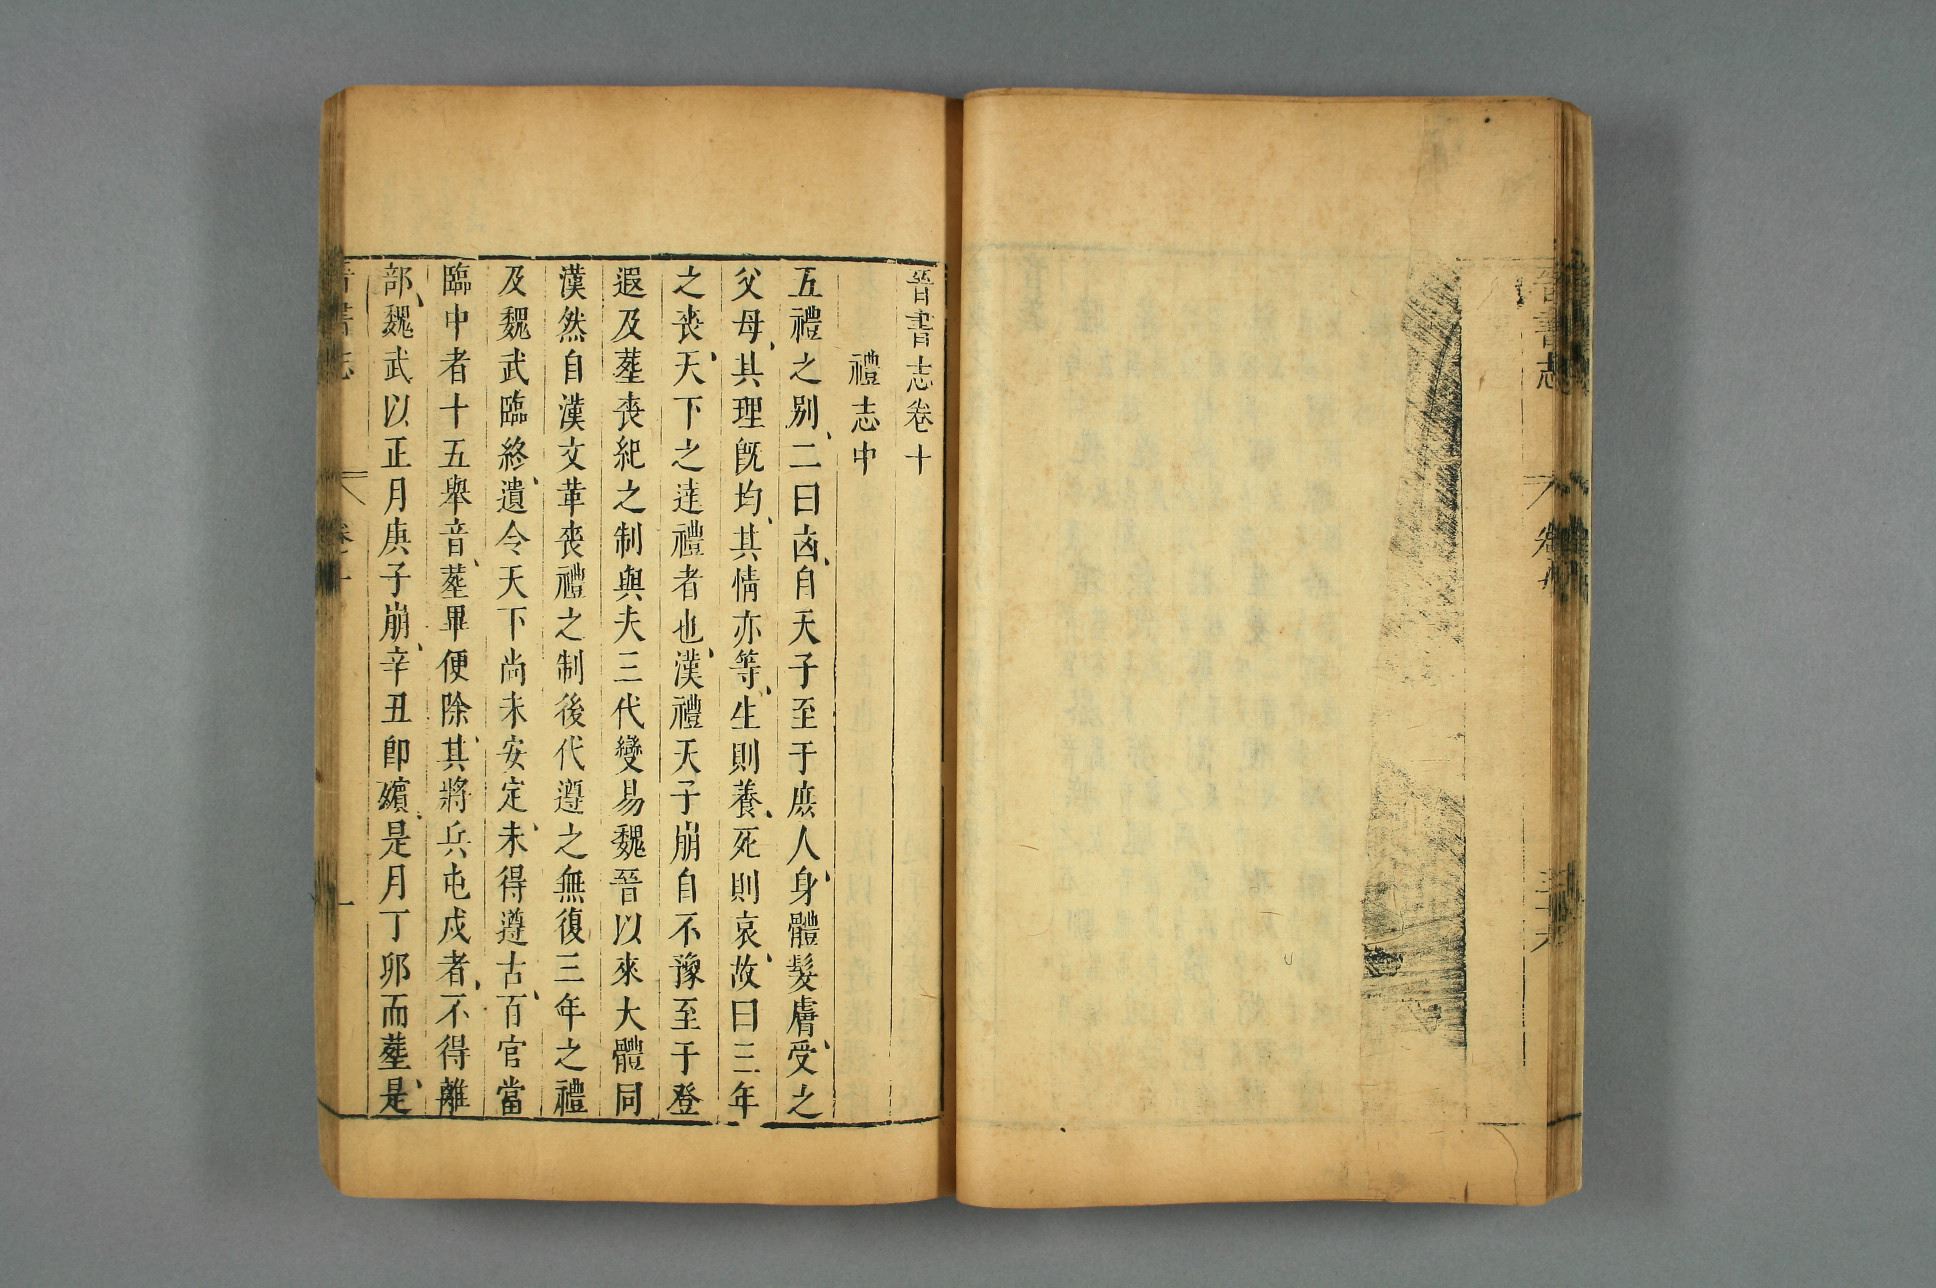 晉書志
卷九
三十九
晉書志卷十
禮志中
五禮之別、二曰凶、自天子至于庶人、身體髮膚、受之
父母、其理旣均、其情亦等、生則養、死則哀、故曰三年
之喪、天下之達禮者也、漢禮天子崩自不豫至于登
遐及塟喪紀之制與夫三代變易魏晉以來大體同
漢然自漢文革喪禮之制後代遵之無復三年之禮
及魏武臨終、遺令天下尚未安定、未得遵古、百官當
臨中者十五舉音、塟畢便除、其將兵屯戍者、不得離
部、魏武以正月庚子崩、辛丑卽殯、是月丁卯而塟、是
晉書志
卷十
一